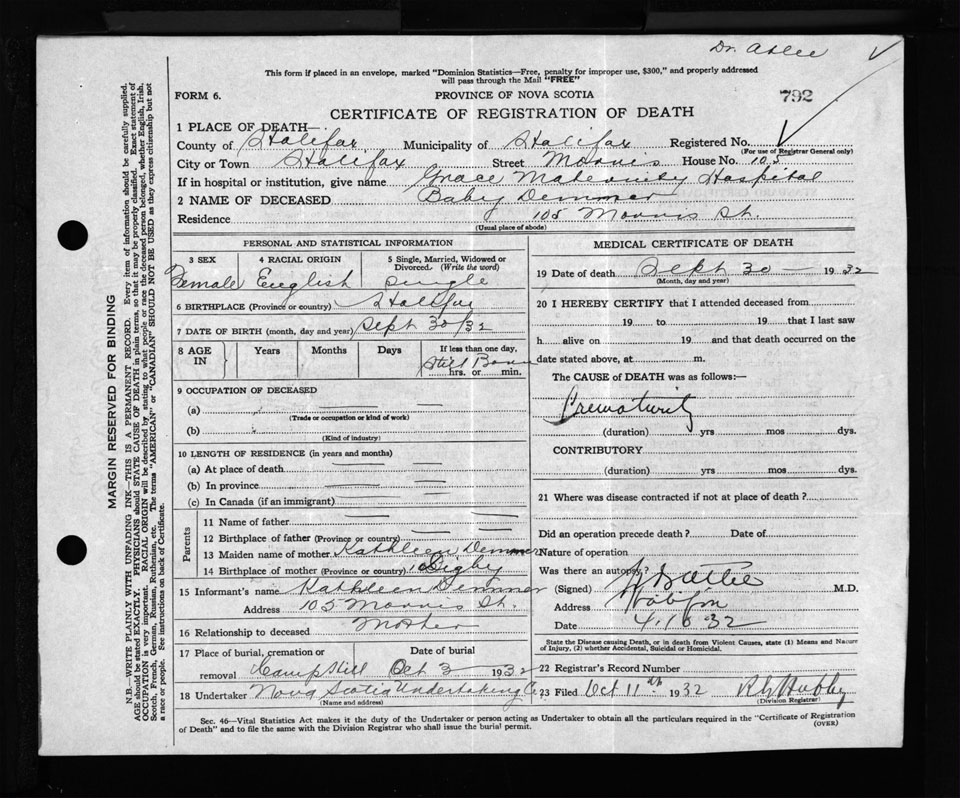 Dr. Atlee
This form if placed in an envelope, marked "Dominion Statistics—Free, penalty for improper use, $300," and properly addressed
will pass through the Mail "FREE"
FORM 6.
PROVINCE OF NOVA SCOTIA
792
CERTIFICATE OF REGISTRATION OF DEATH
1 PLACE OF DEATH—
County of Halifax Municipality of Halifax Registered No.
(For use of Registrar General only)
City or Town Halifax Street Morris House No. 105
If in hospital or institution, give name Grace Maternity Hospital
2 NAME OF DECEASED Baby Demmer
Residence 105 Morris St.
(Usual place of abode)
PERSONAL AND STATISTICAL INFORMATION
3 SEX 4 RACIAL ORIGIN 5 Single, Married, Widowed or
Divorced. (Write the word)
Female English single
6 BIRTHPLACE (Province or country) Halifax
7 DATE OF BIRTH (month, day and year) Sept 30/32
8 AGE IN Years Months Days If less than one day,
Still Born
hrs. or min.
9 OCCUPATION OF DECEASED
(a)
(Trade or occupation or kind of work)
(b)
(Kind of industry)
10 LENGTH OF RESIDENCE (in years and months)
(a) At place of death
(b) In province
(c) In Canada (if an immigrant)
Parents
11 Name of father
12 Birthplace of father (Province or country)
13 Maiden name of mother Kathleen Demmer
14 Birthplace of mother (Province or country) Digby
15 Informant's name Kathleen Demmer
Address 105 Morris St.
16 Relationship to deceased Mother
17 Place of burial, cremation or removal Date of burial
Camp Hill Oct 3 1932
18 Undertaker Nova Scotia Undertaking Co
(Name and address)
MEDICAL CERTIFICATE OF DEATH
19 Date of death Sept 30 — 1932
(Month, day and year)
20 I HEREBY CERTIFY that I attended deceased from
19 to 19 that I last saw
h alive on 19 and that death occurred on the
date stated above, at m.
The CAUSE of DEATH was as follows:—
Prematurity
(duration) yrs mos dys.
CONTRIBUTORY
(duration) yrs mos dys.
21 Where was disease contracted if not at place of death?
Did an operation precede death? Date of
Nature of operation
Was there an autopsy?
(Signed) M.D.
Address Halifax
Date 4.10.32
State the Disease causing Death, or in death from Violent Causes, state (1) Means and Nature
of Injury, (2) whether Accidental, Suicidal or Homicidal.
22 Registrar's Record Number
23 Filed Oct 11th 1932
(Division Registrar)
Sec. 46—Vital Statistics Act makes it the duty of the Undertaker or person acting as Undertaker to obtain all the particulars required in the "Certificate of Registration
of Death" and to file the same with the Division Registrar who shall issue the burial permit.
(OVER)
MARGIN RESERVED FOR BINDING
N.B.—WRITE PLAINLY WITH UNFADING INK—THIS IS A PERMANENT RECORD. Every item of information should be carefully supplied.
AGE should be stated EXACTLY. PHYSICIANS should STATE CAUSE OF DEATH in plain terms, so that it may be properly classified. Exact statement of
OCCUPATION is very important. RACIAL ORIGIN will be described by stating to what people or race the deceased person belonged, whether English, Irish,
Scotch, French, German, Russian, Ruthenian, etc. The terms "AMERICAN" or "CANADIAN" SHOULD NOT BE USED as they express citizenship but not
a race or people. See instructions on back of Certificate.